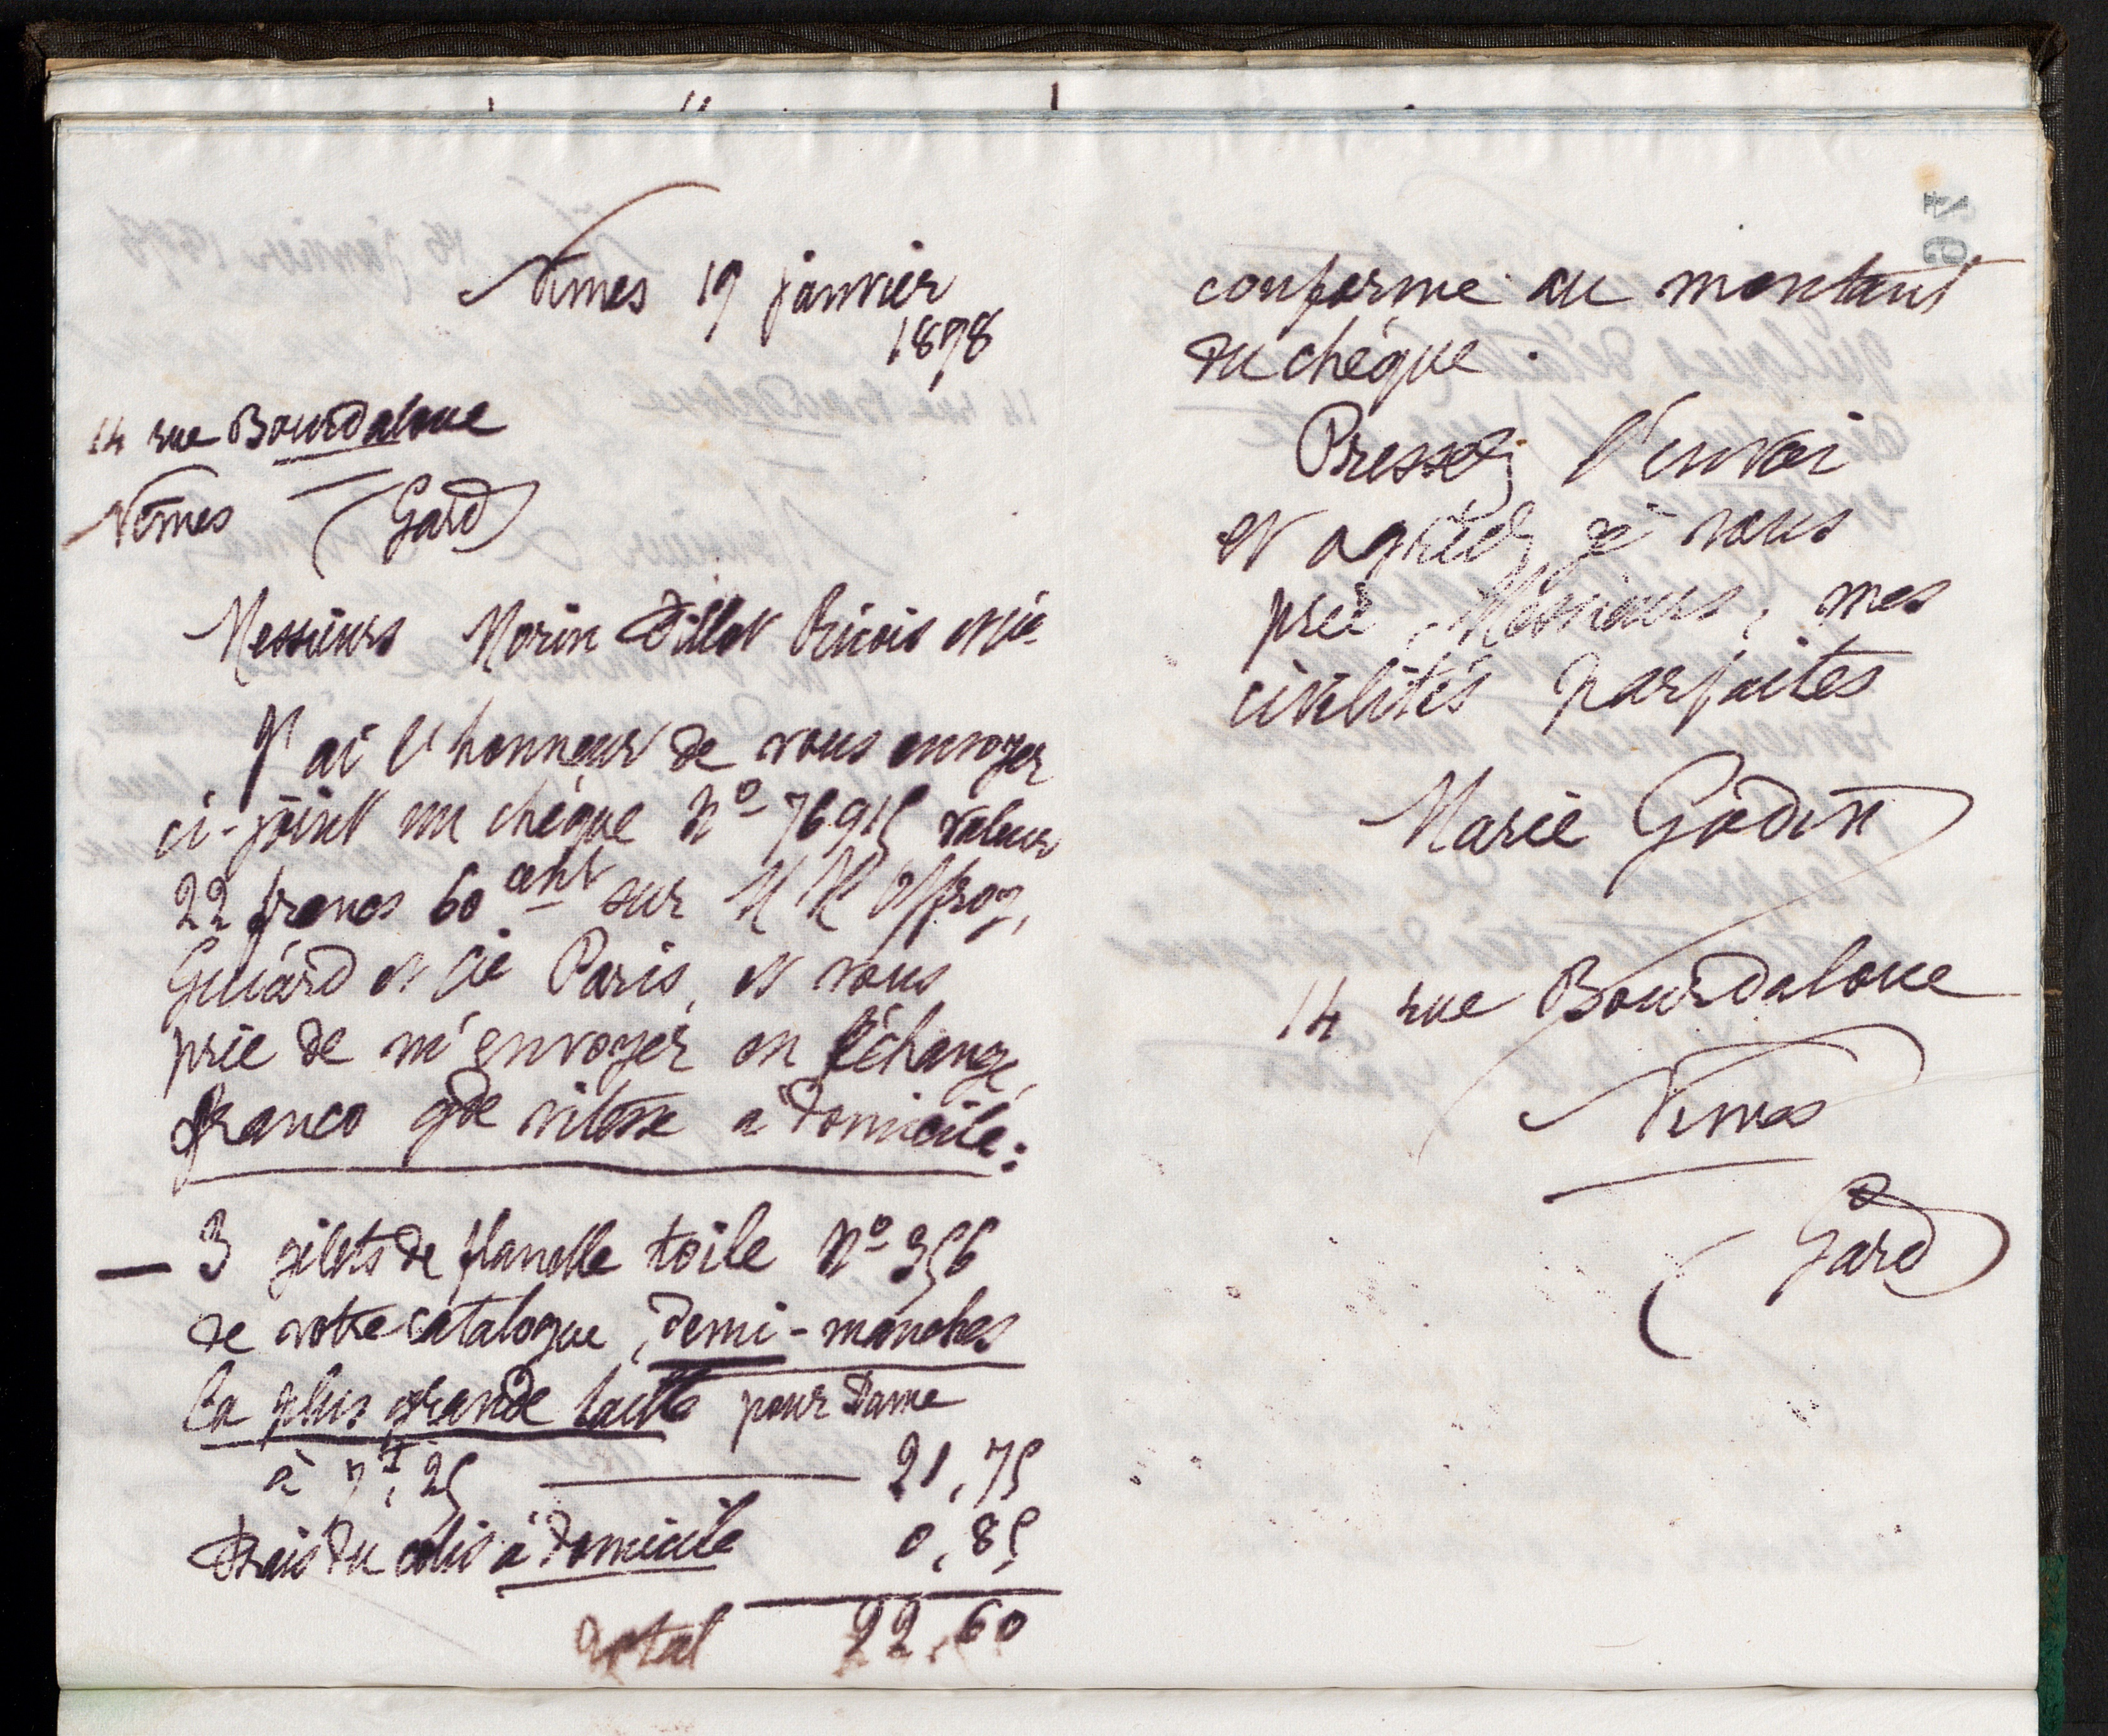 Nîmes 19 janvier
1898
14 rue Bourdaloue
Nîmes (Gard)
Messieurs Morin et Cie
J'ai l'honneur de vous envoyer
ci-joint un chèque No 76915 valeur
22 francs 60 cent sur MM Offroy,
Guiard et Cie Paris, et vous
prie de m'envoyer en échange,
franco gde vitesse à domicile:
— 3 gilets de flanelle toile No 356
de votre catalogue, demi-manches
la plus grande taille pour dame
à 7f,25 21,75
Frais du colis à domicile 0,85
Total 22,60
conforme au montant
du chèque.
Pressez l'envoi
et agréez je vous
prie, Messieurs, mes
civilités parfaites
Marie Godin
14 rue Bourdaloue
Nîmes
(Gard)